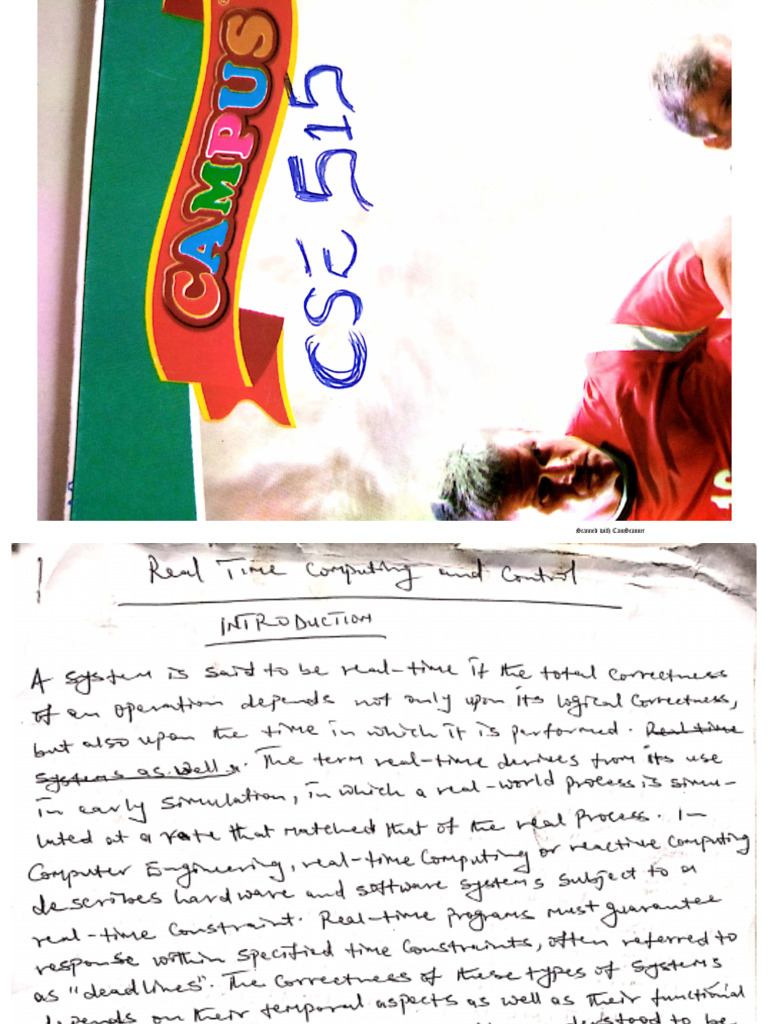 CAMPUS
CSE 515
Scanned with CamScanner
Real Time Computing and Control
INTRODUCTION
A system is said to be real-time if the total correctness
of an operation depends not only upon its logical correctness,
but also upon the time in which it is performed. Real time
systems as well. The term real-time derives from its use
in early simulation, in which a real-world process is simu-
lated at a rate that matched that of the real process. In
Computer Engineering, real-time computing or reactive computing
describes hardware and software systems subject to a
real-time constraint. Real-time programs must guarantee
response within specified time constraints, often referred to
as "deadlines". The correctness of these types of systems
depends on their temporal aspects as well as their functional
understood to be